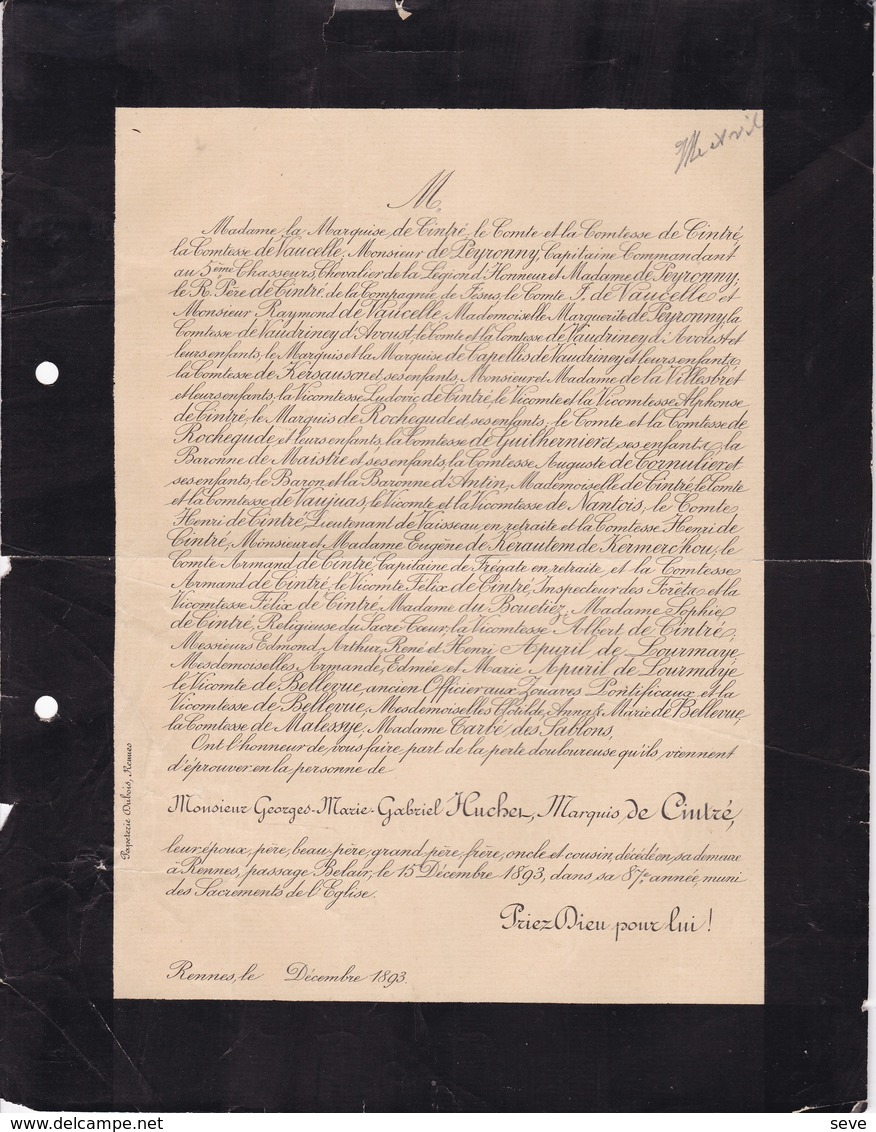 M.
Madame la Marquise de Cintré, le Comte et la Comtesse de Cintré,
la Comtesse de Vaucelle, Monsieur de Peyronny, Capitaine Commandant
au 5ème Chasseurs, Chevalier de la Légion d'Honneur et Madame de Peyronny;
le R. Père de Cintré, de la Compagnie de Jésus, le Comte F. de Vaucelle et
Monsieur Raymond de Vaucelle, Mademoiselle Marguerite de Peyronny, la
Comtesse de Vaudriney d'Avoust, le Comte et la Comtesse de Vaudriney d'Avoust et
leurs enfants, le Marquis et la Marquise de Capellis de Vaudriney et leurs enfants,
la Comtesse de Kersauson et ses enfants, Monsieur et Madame de la Villesbret
et leurs enfants, la Vicomtesse Ludovic de Cintré, le Vicomte et la Vicomtesse Alphonse
de Cintré, le Marquis de Rochegude et ses enfants, le Comte et la Comtesse de
Rochegude et leurs enfants, la Comtesse de Guilhernier et ses enfants, la
Baronne de Maistre et ses enfants, la Comtesse Auguste de Cornulier et
ses enfants, le Baron et la Baronne d'Antin, Mademoiselle de Cintré, le Comte
et la Comtesse de Vaujuas, le Vicomte et la Vicomtesse de Nantois, le Comte
Henri de Cintré, Lieutenant de Vaisseau en retraite et la Comtesse Henri de
Cintré, Monsieur et Madame Eugène de Kerautem de Kermerc'hou, le
Comte Armand de Cintré, Capitaine de Frégate en retraite, et la Comtesse
Armand de Cintré, le Vicomte Félix de Cintré, Inspecteur des Forêts et la
Vicomtesse Félix de Cintré, Madame du Bouëtiez, Madame Sophie
de Cintré, Religieuse du Sacré-Cœur, la Vicomtesse Albert de Cintré,
Messieurs Edmond, Arthur, René et Henri Apuril de Lourmaye,
Mesdemoiselles Armande, Edmée et Marie Apuril de Lourmaye,
le Vicomte de Bellevue, ancien Officier aux Zouaves Pontificaux et la
Vicomtesse de Bellevue, Mesdemoiselles Clotilde, Anna & Marie de Bellevue,
la Comtesse de Malessye, Madame Tarbé des Sablons,
Ont l'honneur de vous faire part de la perte douloureuse qu'ils viennent
d'éprouver en la personne de
Monsieur Georges-Marie-Gabriel Huchet, Marquis de Cintré,
leur époux, père, beau-père, grand-père, frère, oncle et cousin, décédé en sa demeure
à Rennes, passage Belair, le 15 Décembre 1893, dans sa 87e année, muni
des Sacrements de l'Eglise.
Priez Dieu pour lui!
Rennes, le Décembre 1893.
Papeterie Dubois, Rennes
seve